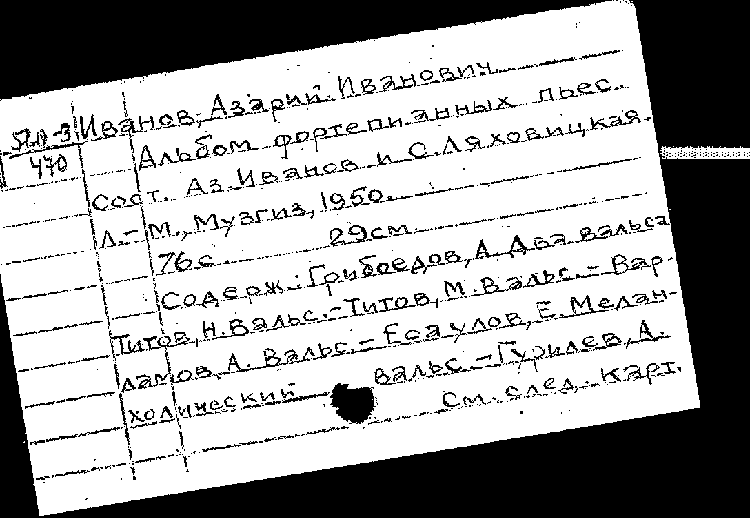 Иванов, Азарий Иванович
57.А-3
470
Альбом фортепианных пьес.
Сост. Аз. Иванов и С. Ляховицкая.
Л.-М., Музгиз, 1950.
76с. 29см
Содерж.: Грибоедов, А. Два вальса
Титов, Н. Вальс.-Титов, М. Вальс.-Вар-
ламов, А. Вальс.-Есаулов, Е. Мелан-
холический вальс.-Гурилев, А.
См. след. карт.